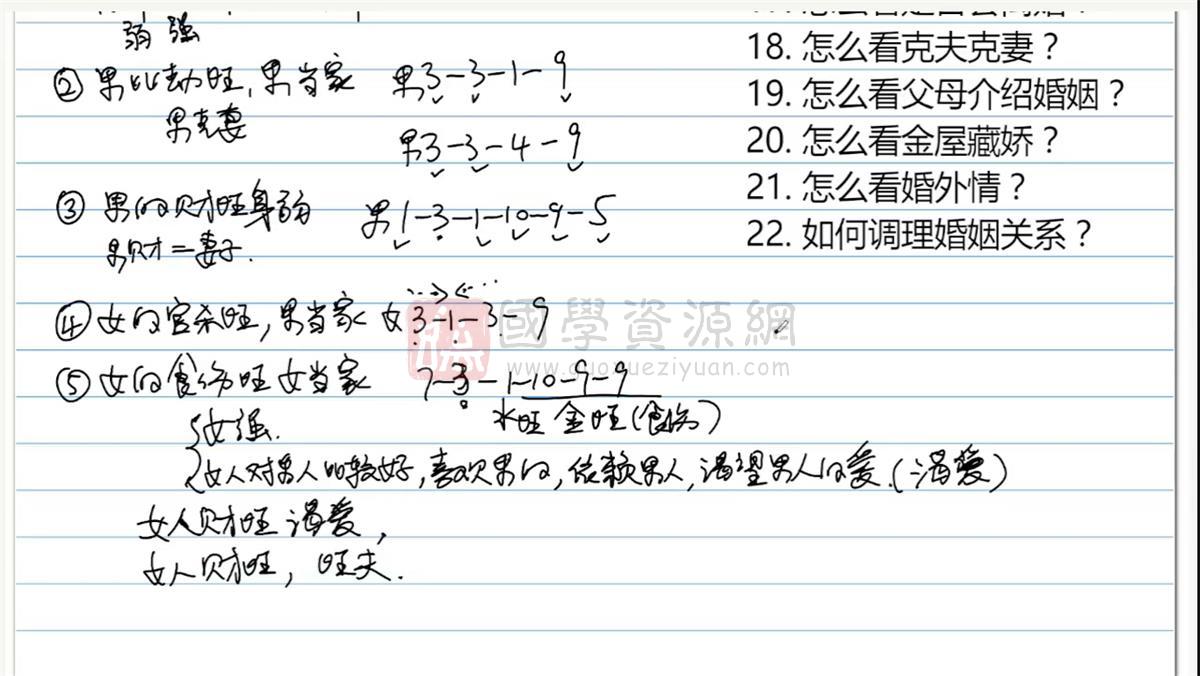 弱 强
② 男比劫旺,男当家 男3-3-1-9
男克妻
男3-3-4-9
③ 男的财旺身弱 男1-3-1-10-9-5
男财=妻子.
④ 女的官杀旺,男当家 女3-1-3-9
⑤ 女的食伤旺 女当家 7-3-1-10-9-9
水旺 金旺(食伤)
女强.
女人对男人比较好,喜欢男的,依赖男人,渴望男人的爱.(渴爱)
女人财旺 渴爱,
女人财旺, 旺夫.
18. 怎么看克夫克妻?
19. 怎么看父母介绍婚姻?
20. 怎么看金屋藏娇?
21. 怎么看婚外情?
22. 如何调理婚姻关系?
國學資源網
www.guoxueziyuan.com